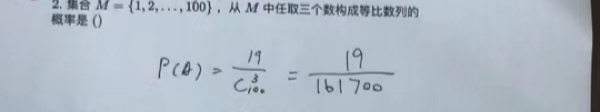 2. 集合 M = {1,2,...,100}，从 M 中任取三个数构成等比数列的
概率是 ()
P(A) = 19/C₁₀₀³ = 19/161700